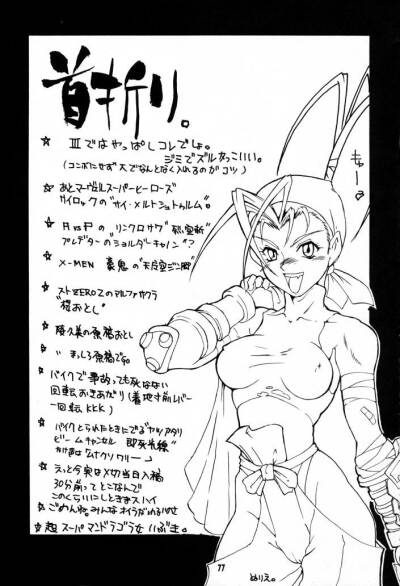 首折り。
★ Ⅲではやっぱしコレでしょ。
ジミでズルかっこいい。
(コンボにせず大でなんとなく入れるのがコツ)
★ あとマーヴルスーパーヒーローズ
サイロックの"サイ・メルトシュトゥルム"
★ AvsPの"リンクロサワ"
プレデターの"ショルダーキャノン"?
★ X-MEN 豪鬼の"天魔空刃脚"
★ ストZERO2のアルファサクラ
"桜おとし"
の原稿おとし
★ まっしろ原稿で
★ バイクで事故っても死なない
回転おきあがり(着地寸前レバー
一回転KKK)
★ バイクとられたときにでる
ビームチャンセル 即死光線
★ えっと今実は〆切当日入稿
30分前ってとこなんで
このくらいにしときまスハイ
★ ごめんね。みんな
★ 超スーパーマンドラゴラ女いぶき。
もーっ
77
ぬりえ。